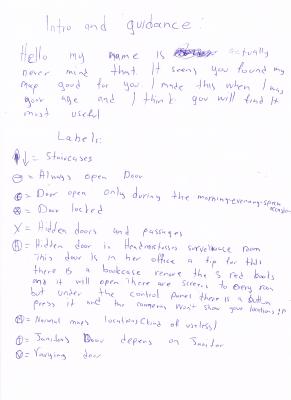 Intro and guidance:
Hello my name is actually
never mind that. It seems you found my
map good for you I made this when I was
your age and I think you will find it
most useful
Labels:
↑↓ = Staircases
= Always open Door
= Door open only during the morning-evening-special
= Door locked
X = Hidden doors and passages
= Hidden door in Headmistresses surveillance room
This door is in her office a tip for this
there is a bookcase remove the 5 red books
and it will open There are screens to every room
but under the control panel there is a button
press it and the cameras won't show your locations :p
= Normal map locations (kind of useless)
= Janitors Door depens on Janitor
= Varying door